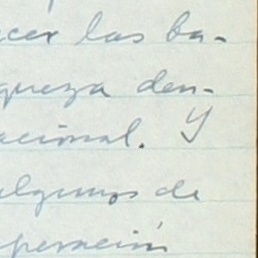 acer las ba-
queza den-
nacional. Y
algunos de
peración